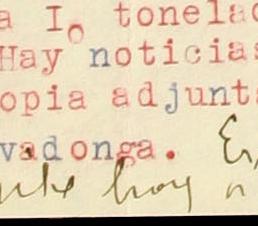 a I. tonelad
Hay noticias
opia adjunta
vadonga.
hoy